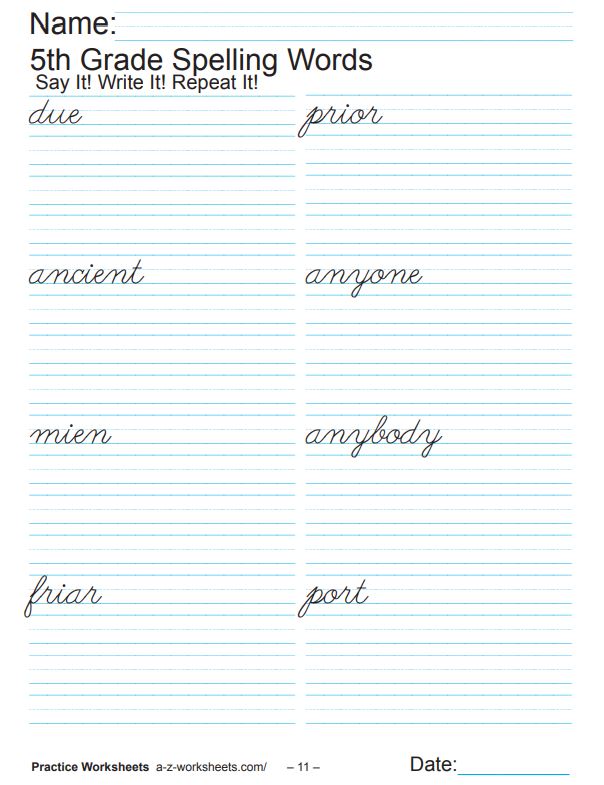 Name:
5th Grade Spelling Words
Say It! Write It! Repeat It!
due prior
ancient anyone
mien anybody
friar port
Practice Worksheets a-z-worksheets.com/ – 11 – Date: